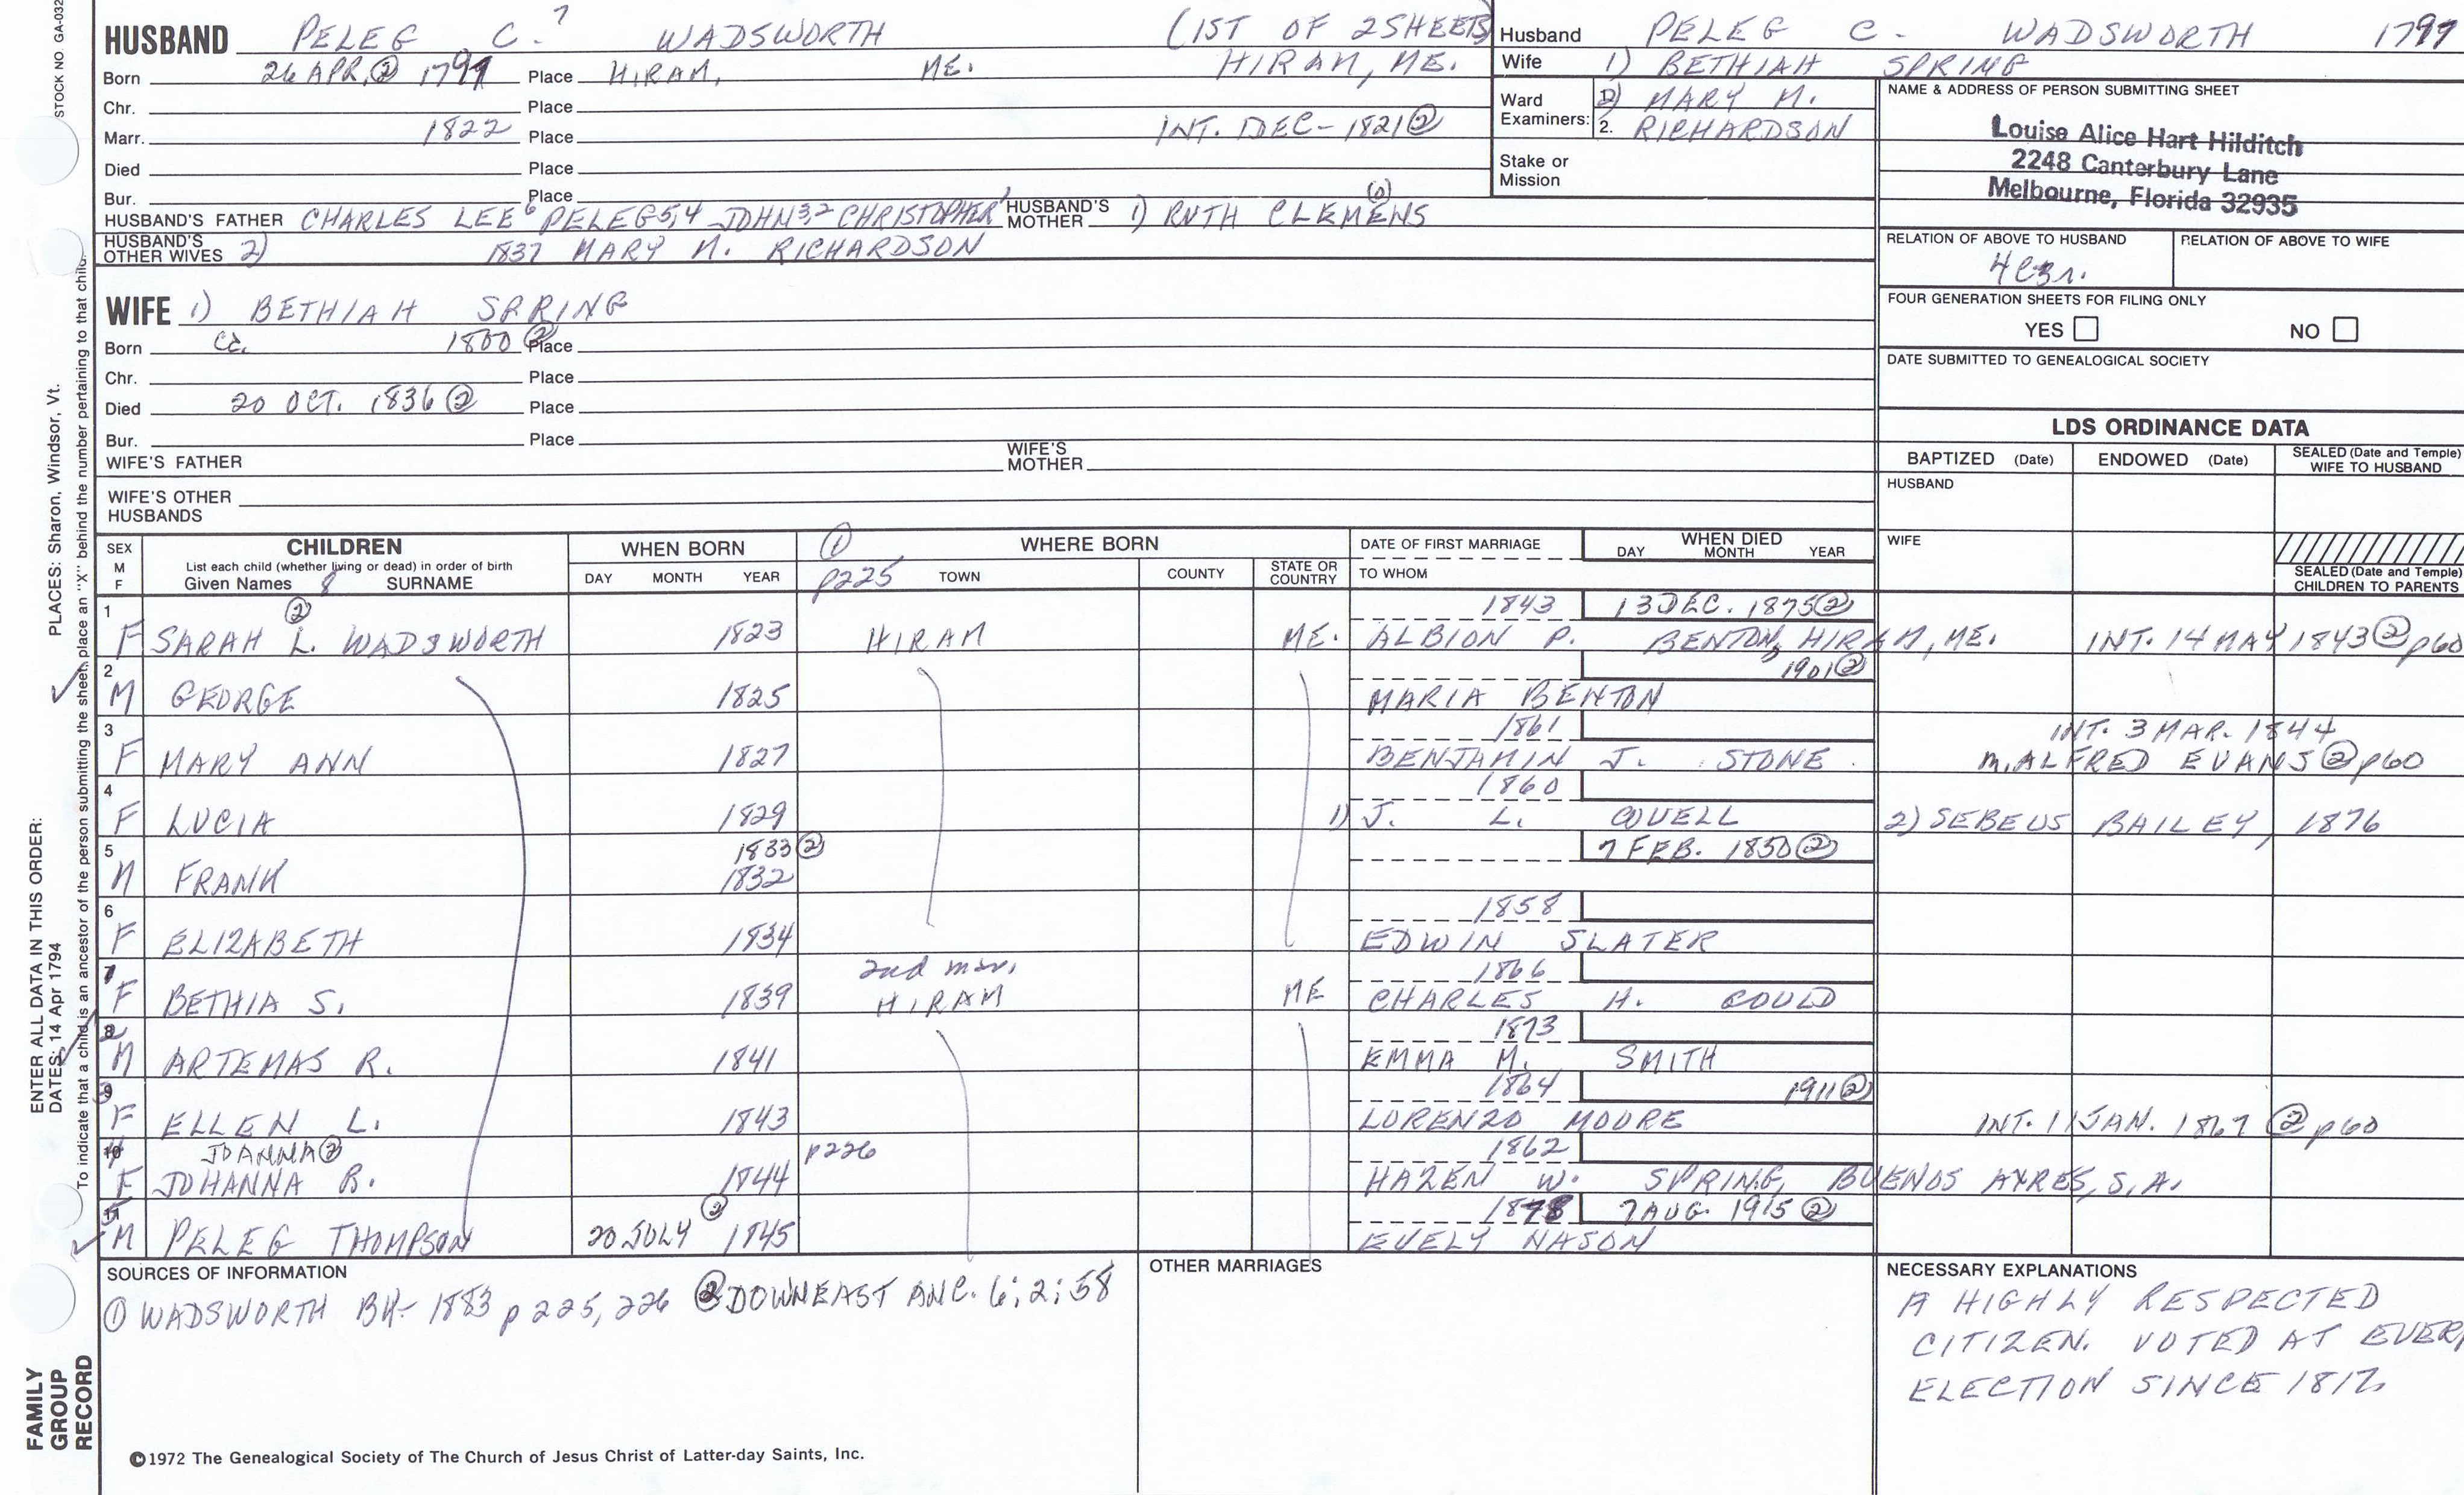 STOCK NO GA-032
HUSBAND PELEG C.? WADSWORTH (1ST OF 2 SHEETS)
Born 26 APR. ② 1799 Place HIRAM, ME. HIRAM, ME.
Chr. Place
Marr. 1822 Place INT. DEC - 1821 ②
Died Place
Bur. Place
HUSBAND'S FATHER CHARLES LEE 6 PELEG 5,4 JOHN 3,2 CHRISTOPHER 1 HUSBAND'S MOTHER 1) RUTH CLEMENS (O)
HUSBAND'S OTHER WIVES 2) 1837 MARY M. RICHARDSON
Husband PELEG C. WADSWORTH 1799
Wife 1) BETHIAH SPRING
Ward Examiners: 2) MARY M.
2. RICHARDSON
Stake or Mission
NAME & ADDRESS OF PERSON SUBMITTING SHEET
Louise Alice Hart Hilditch
2248 Canterbury Lane
Melbourne, Florida 32935
RELATION OF ABOVE TO HUSBAND RELATION OF ABOVE TO WIFE
4C3r.
FOUR GENERATION SHEETS FOR FILING ONLY
YES NO
DATE SUBMITTED TO GENEALOGICAL SOCIETY
WIFE 1) BETHIAH SPRING
Born ca. 1800 ② Place
Chr. Place
Died 20 OCT. 1836 ② Place
Bur. Place
WIFE'S FATHER WIFE'S MOTHER
WIFE'S OTHER HUSBANDS
LDS ORDINANCE DATA
BAPTIZED (Date) ENDOWED (Date) SEALED (Date and Temple) WIFE TO HUSBAND
HUSBAND
WIFE
SEALED (Date and Temple) CHILDREN TO PARENTS
SEX M F CHILDREN WHEN BORN ① WHERE BORN DATE OF FIRST MARRIAGE WHEN DIED
List each child (whether living or dead) in order of birth
Given Names 8 SURNAME DAY MONTH YEAR p225 TOWN COUNTY STATE OR COUNTRY TO WHOM DAY MONTH YEAR
1 ② 1843 13 DEC. 1875 ②
F SARAH L. WADSWORTH 1823 HIRAM ME. ALBION P. BENTON, HIRAM, ME. INT. 14 MAY 1843 ② p60
2 1901 ②
M GEORGE 1825 MARIA BENTON
3 1861 INT. 3 MAR. 1844
F MARY ANN 1827 BENJAMIN J. STONE m. ALFRED EVANS ② p60
4 1860
F LUCIA 1829 1) J. L. COVELL 2) SEBEUS BAILEY, 1876
5 1833 ② 7 FEB. 1850 ②
M FRANK 1832
6 1858
F ELIZABETH 1834 EDWIN SLATER
7 2nd mar. 1866
F BETHIA S. 1839 HIRAM ME CHARLES H. GOULD
8 1873
M ARTEMAS R. 1841 EMMA M. SMITH
9 1864 1911 ②
F ELLEN L. 1843 LORENZO MOORE INT. 11 JAN. 1867 ② p60
10 JOANNA ② p226 1862
F JOHANNA R. 1844 HAZEN W. SPRING, BUENOS AYRES, S.A.
11 ② 1878 7 AUG. 1915 ②
M PELEG THOMPSON 20 JULY 1845 EVELY NASON
SOURCES OF INFORMATION
① WADSWORTH BK - 1883 p 225, 226 ② DOWNEAST ANC. 6:2:58
OTHER MARRIAGES
NECESSARY EXPLANATIONS
A HIGHLY RESPECTED
CITIZEN. VOTED AT EVERY
ELECTION SINCE 1812.
©1972 The Genealogical Society of The Church of Jesus Christ of Latter-day Saints, Inc.
FAMILY GROUP RECORD
ENTER ALL DATA IN THIS ORDER:
DATES: 14 Apr 1794
PLACES: Sharon, Windsor, Vt.
To indicate that a child is an ancestor of the person submitting the sheet, place an "X" behind the number pertaining to that child.